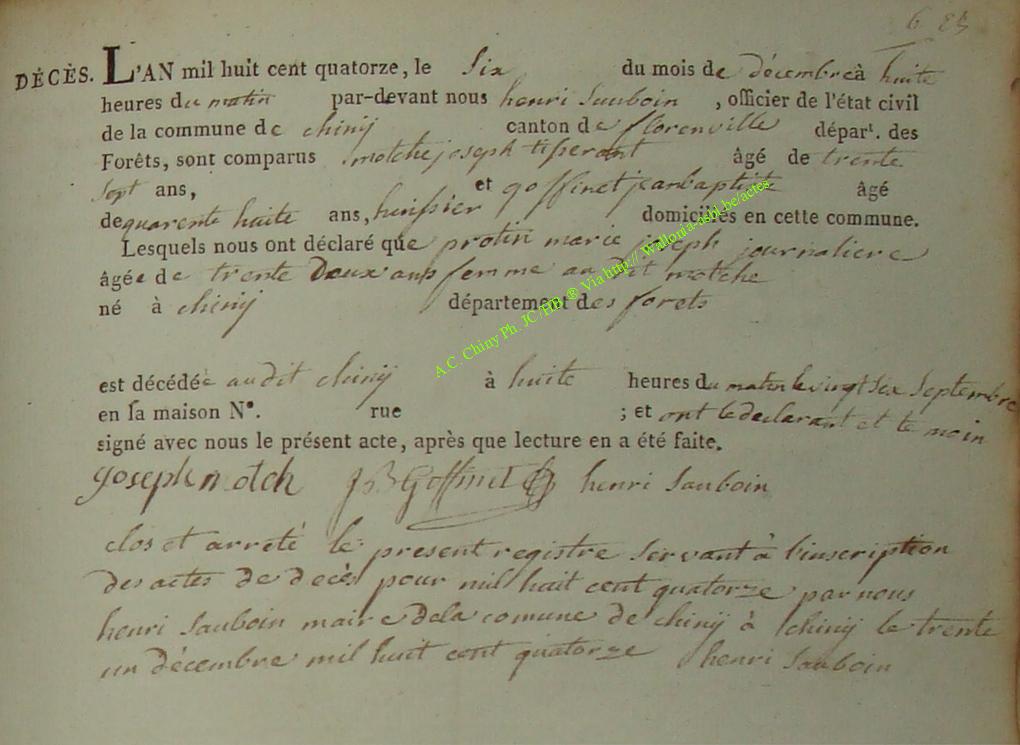 6 83
DÉCÈS. L'AN mil huit cent quatorze, le Six du mois de décembre à huite
heures du matin par-devant nous henri Sauboin, officier de l'état civil
de la commune de chinÿ canton de florenville départ. des
Forêts, sont comparus motche joseph tiserant âgé de trente
Sept ans, et goffinet jean baptiste âgé
de quarente huite ans, huissier domiciliés en cette commune.
Lesquels nous ont déclaré que protin marie joseph journaliere
âgée de trente Deux ans femme au dit motche
né à chinÿ département des forets
est décédée audit chinÿ à huite heures du matin le vingt Six Septembre
en sa maison N°. rue ; et ont le declarant et te moin
signé avec nous le présent acte, après que lecture en a été faite.
joseph motch JB Goffinet henri Sauboin
clos et arreté le present registre Servant à l'inscription
des actes de decès pour mil huit cent quatorze par nous
henri Sauboin maire dela comune de chinÿ à chinÿ le trente
un décembre mil huit cent quatorze henri Sauboin
A.C. Chiny Ph. JC/HB ® Via http:// Wallonia-asbl.be/actes